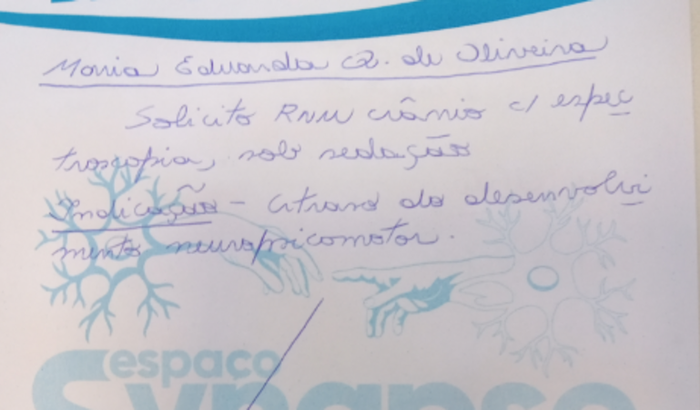 Maria Eduarda R. de Oliveira
Solicito RNM crânio c/ espec
troscopia, sob sedação
Indicação - Atraso do desenvolvi
mento neuropsicomotor.
espaço
Synapse